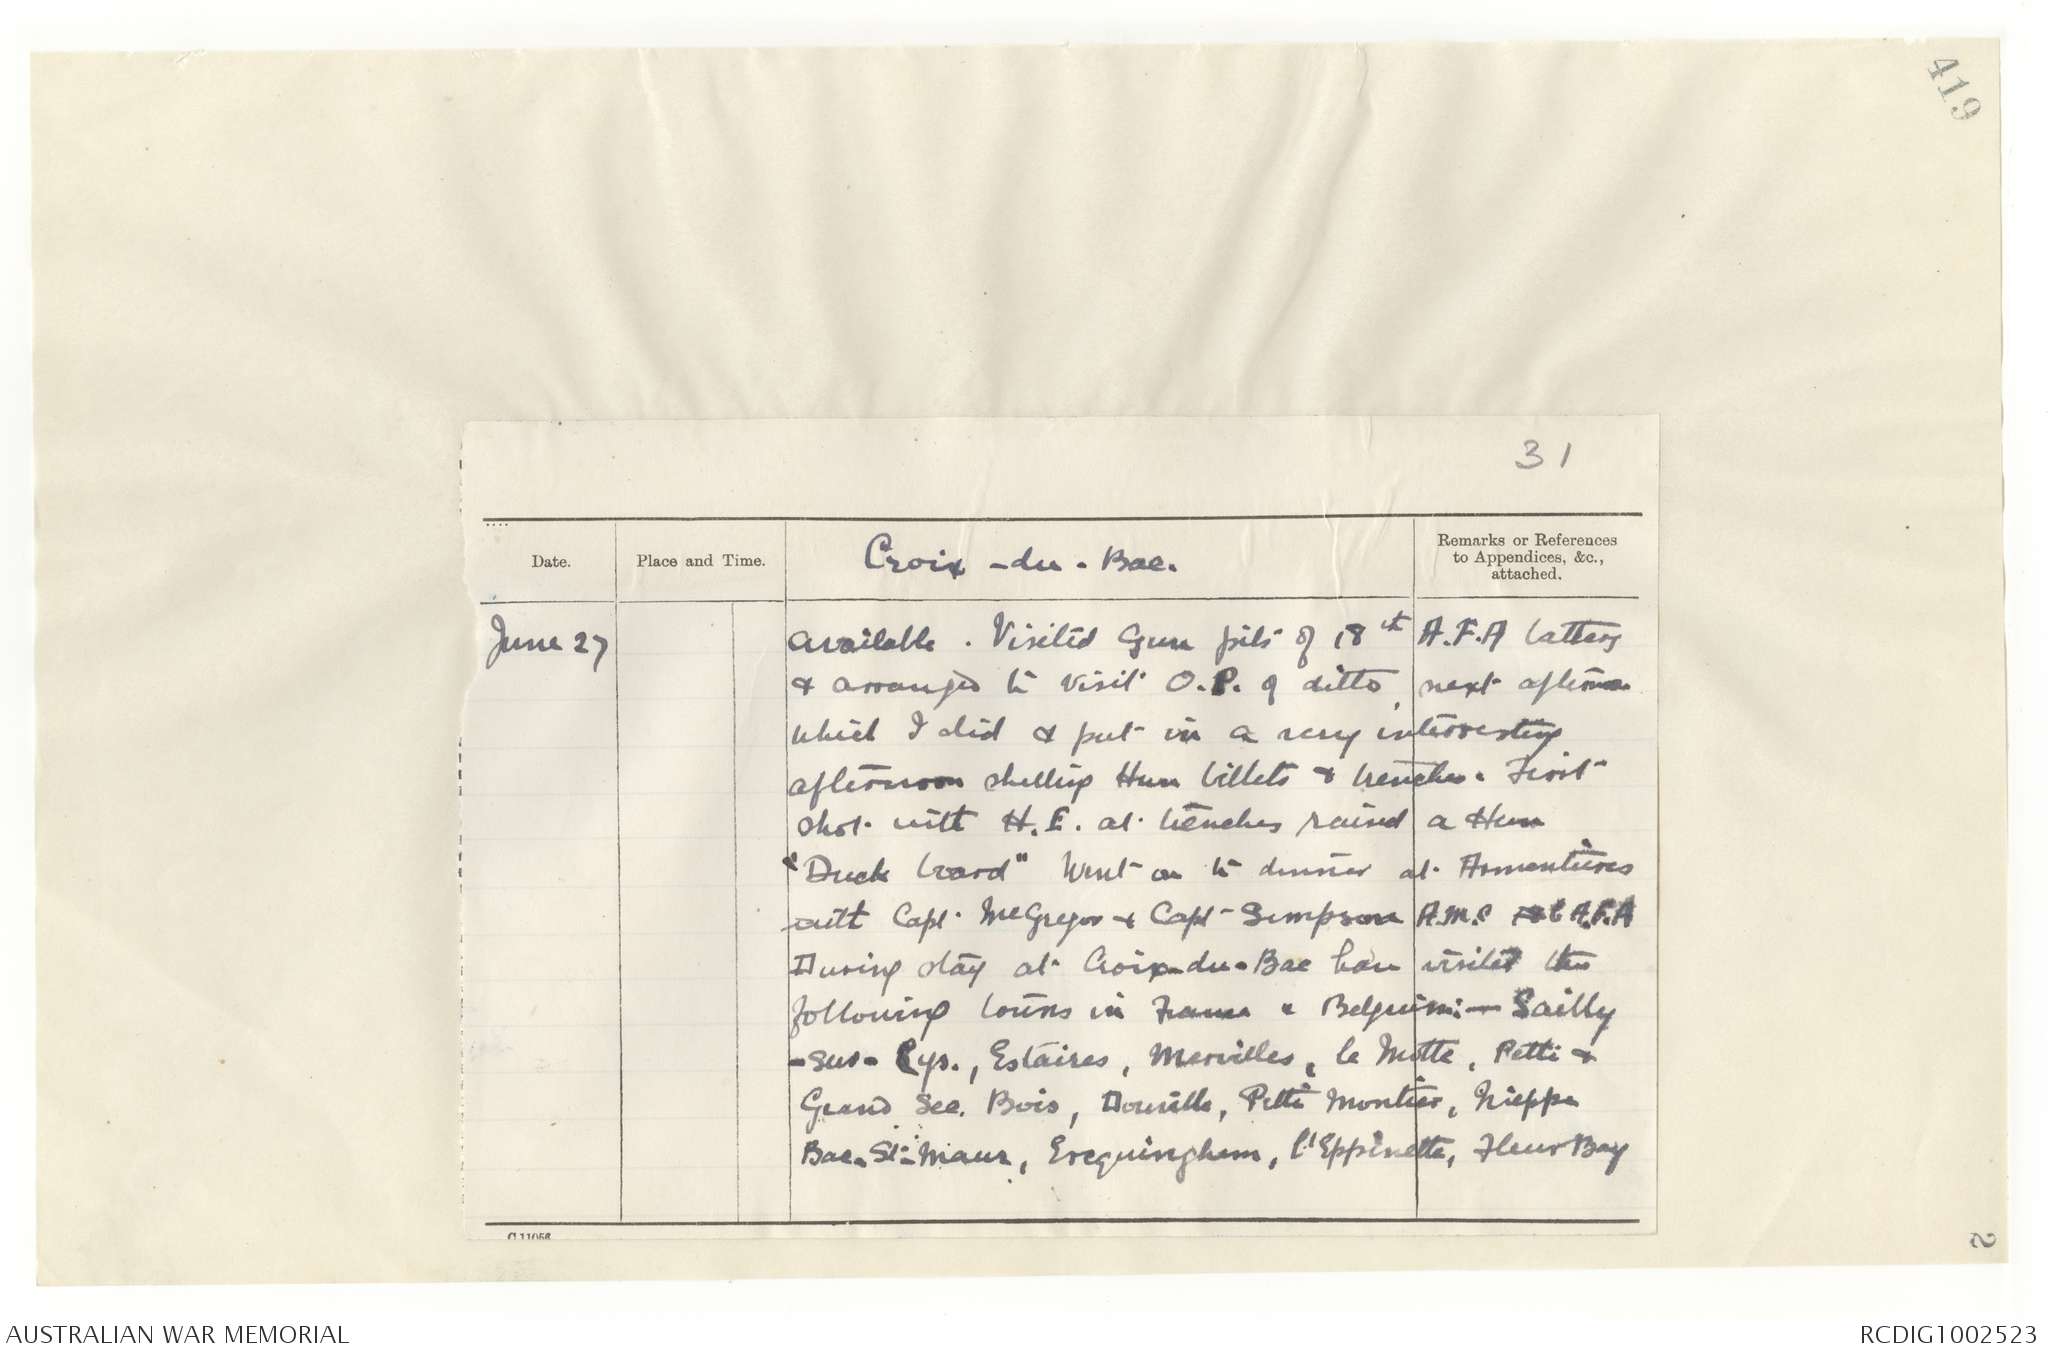 419
31
Date.
Place and Time.
Croix-du-Bac.
Remarks or References
to Appendices, &c.,
attached.
June 27
available. Visited Gun pits of 18th A.F.A battery
& arranged to visit O.P. of ditto, next afternoon
which I did & put in a very interresting
afternoon shelling Hun billets & trenches. First
shot with H.E. at trenches raised a Hun
"Duck board" Went on to dinner at Armentieres
with Capt. McGregor & Capt Simpson A.M.C A.F.A
During stay at Croix-du-Bac have visited the
following towns in France & Belguim:- Sailly
-sur-Lys., Estaires, Mervilles, le Motte, Petti &
Grand Sec. Bois, Douville, Petti Montier, Nieppe
Bac-St-Maur, Erequinghem, l'Eppinette, Fleur Bay
G 11056
2
AUSTRALIAN WAR MEMORIAL
RCDIG1002523